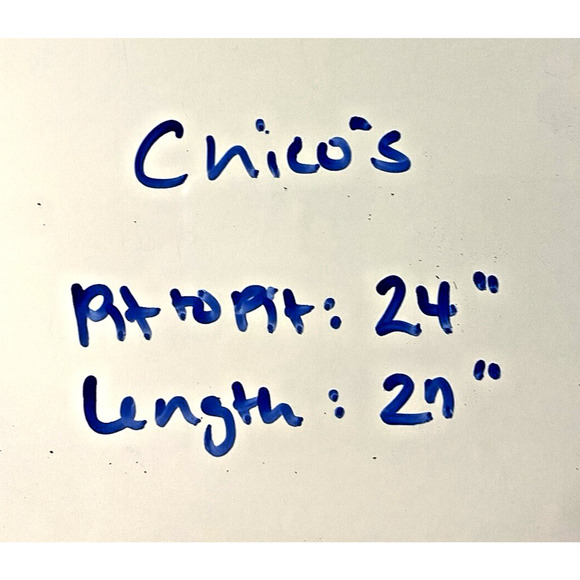 Chico's
Pit to Pit: 24"
Length: 27"